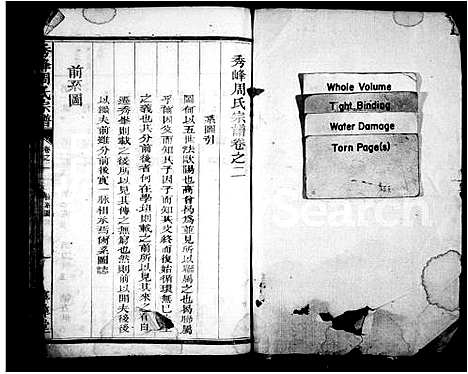 秀峰周氏宗譜卷之二
系圖引
圖何以五世法歐陽也商曾揭為並見所以聯屬之也揭聯屬
乎後因父而知其子因子而知其父終而復始循環無已
之義也其分前後者何在學班則載之前所以見其來之有自
遷秀學則載之後所以見其傳之無窮也然則前以開夫後後
以繼夫前雖分前後實一脈相承焉爾系圖誌
前系圖
秀峰周氏宗譜
卷之二
前系圖
Whole Volume
Tight Binding
Water Damage
Torn Page(s)
Search